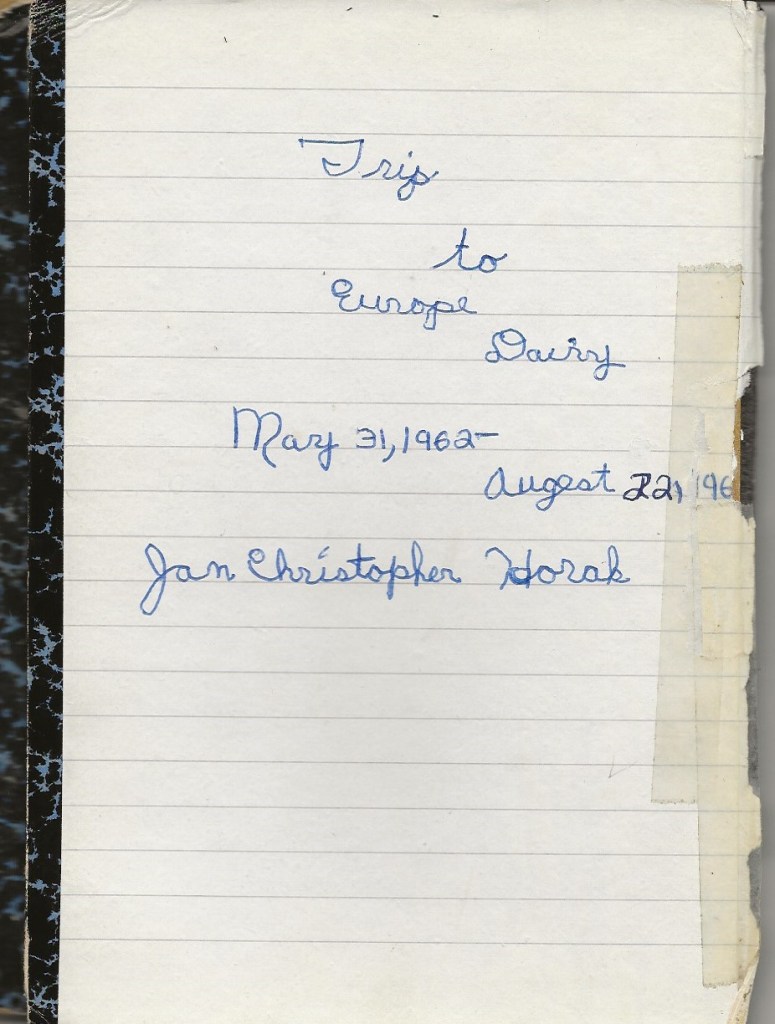 Trip
to
Europe
Dairy
May 31, 1962-
Augest 22, 196
Jan Christopher Horak